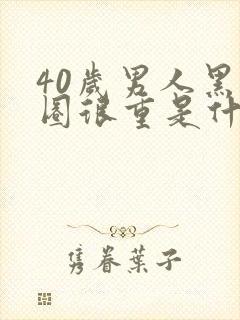 40歲男人黑
圈很重是什
隽眷葉子